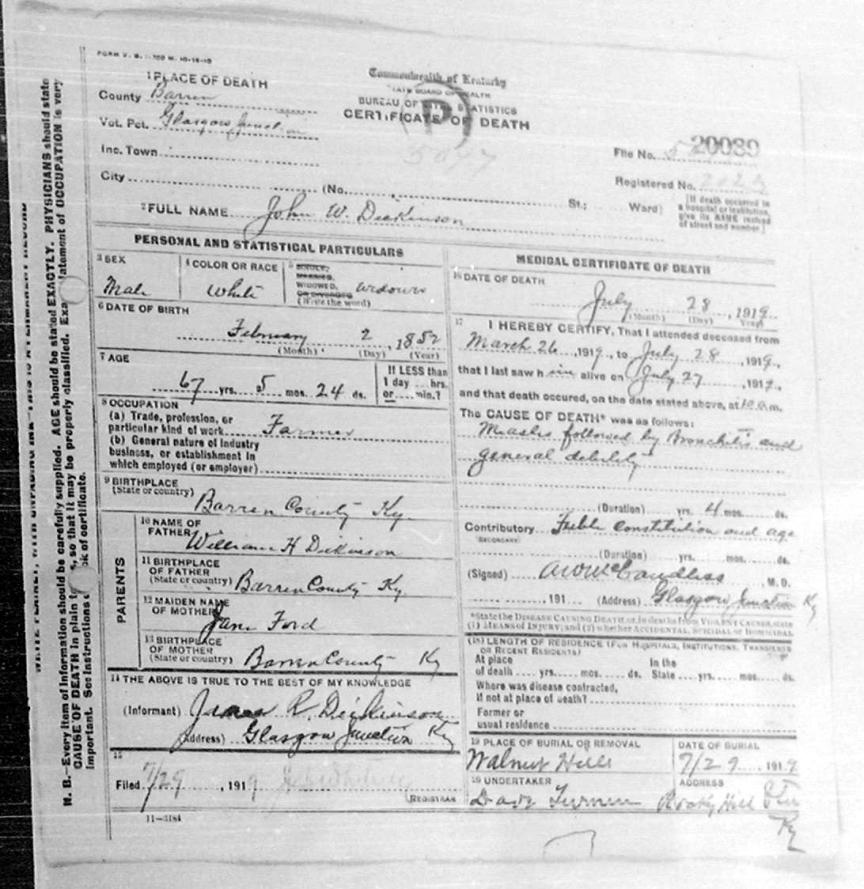 1 PLACE OF DEATH
County Barren
Vot. Pct. Glasgow Junction
Inc. Town
City (No. St.; Ward)
Commonwealth of Kentucky
STATE BOARD OF HEALTH
BUREAU OF VITAL STATISTICS
CERTIFICATE OF DEATH
(P)
File No. 20089
Registered No.
[If death occurred in a hospital or institution, give its NAME instead of street and number]
2 FULL NAME John W. Dickinson
PERSONAL AND STATISTICAL PARTICULARS
3 SEX
Male
4 COLOR OR RACE
White
5 SINGLE,
MARRIED,
WIDOWED,
OR DIVORCED
(Write the word)
widower
6 DATE OF BIRTH
February 2, 1852
(Month) (Day) (Year)
7 AGE
67 yrs. 5 mos. 24 ds.
If LESS than
1 day ... hrs.
or ... min.?
8 OCCUPATION
(a) Trade, profession, or
particular kind of work Farmer
(b) General nature of industry
business, or establishment in
which employed (or employer)
9 BIRTHPLACE
(State or country)
Barren County Ky.
PARENTS
10 NAME OF
FATHER
William H Dickinson
11 BIRTHPLACE
OF FATHER
(State or country) Barren County Ky.
12 MAIDEN NAME
OF MOTHER
Jane Ford
13 BIRTHPLACE
OF MOTHER
(State or country) Barren County Ky
14 THE ABOVE IS TRUE TO THE BEST OF MY KNOWLEDGE
(Informant) James R. Dickinson
(Address) Glasgow Junction Ky
15
Filed 7/29, 1919
REGISTRAR
11-3184
MEDICAL CERTIFICATE OF DEATH
16 DATE OF DEATH
July 28, 1919
(Month) (Day) (Year)
17 I HEREBY CERTIFY, That I attended deceased from
March 26, 1919, to July 28, 1919,
that I last saw him alive on July 27, 1919,
and that death occured, on the date stated above, at 10 a.m.
The CAUSE OF DEATH* was as follows:
Measles followed by Bronchitis and
general debility
(Duration) yrs. 4 mos. ds.
Contributory Feeble constitution and age
SECONDARY
(Duration) yrs. mos. ds.
(Signed) M. D.
, 191 (Address) Glasgow Junction Ky
*State the DISEASE CAUSING DEATH, or, in deaths from VIOLENT CAUSES, state
(1) MEANS OF INJURY; and (2) whether ACCIDENTAL, SUICIDAL or HOMICIDAL
(18) LENGTH OF RESIDENCE (FOR HOSPITALS, INSTITUTIONS, TRANSIENTS
OR RECENT RESIDENTS)
At place
of death yrs. mos. ds.
In the
State yrs. mos. ds.
Where was disease contracted,
if not at place of death?
Former or
usual residence
19 PLACE OF BURIAL OR REMOVAL
Walnut Hill
DATE OF BURIAL
7/29, 1919
20 UNDERTAKER
ADDRESS
Rocky Hill
Ky
N. B.—Every item of information should be carefully supplied. AGE should be stated EXACTLY. PHYSICIANS should state
CAUSE OF DEATH in plain so that it may be properly classified. statement of OCCUPATION is very
important. See instructions of certificate.